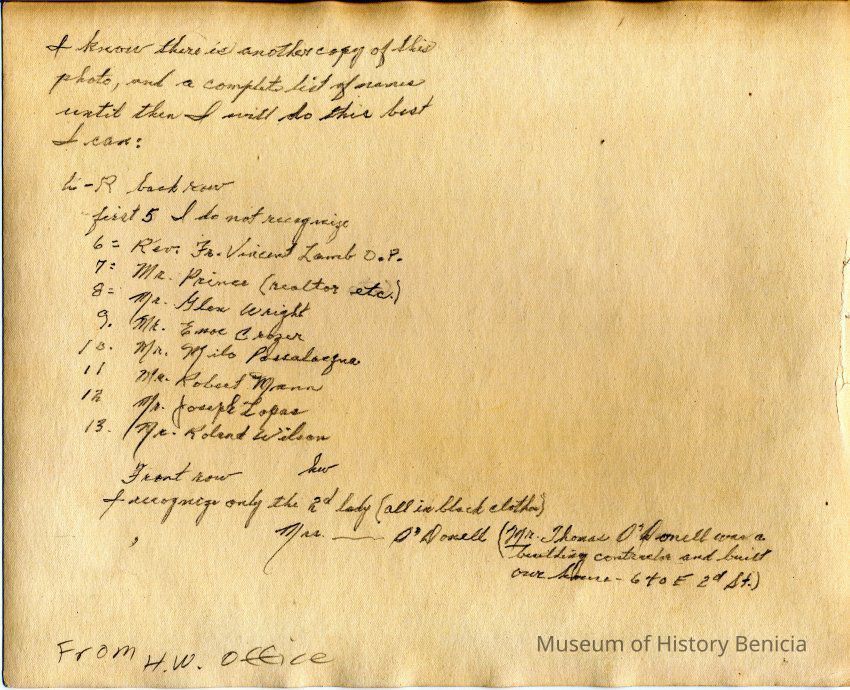 I know there is another copy of this
photo, and a complete list of names
until then I will do this best
I can:
L-R back row
first 5 I do not recognize
6= Rev. Fr. Vincent Lamb O.P.
7= Mr. Prince (realtor etc.)
8= Mr. Glen Wright
9. Mr. Enoe Crozer
10. Mr. Milo Passalacqua
11 Mr. Robert Mann
12 Mr. Joseph Lopas
13. Mr. Roland Wilson
Front row
I recognize only the 2d lady (all in black clothes)
Mrs. —— O'Donell (Mr. Thomas O'Donell was a
building contractor and built
our house - 640 E 2d St.)
From H.W. Office
Museum of History Benicia